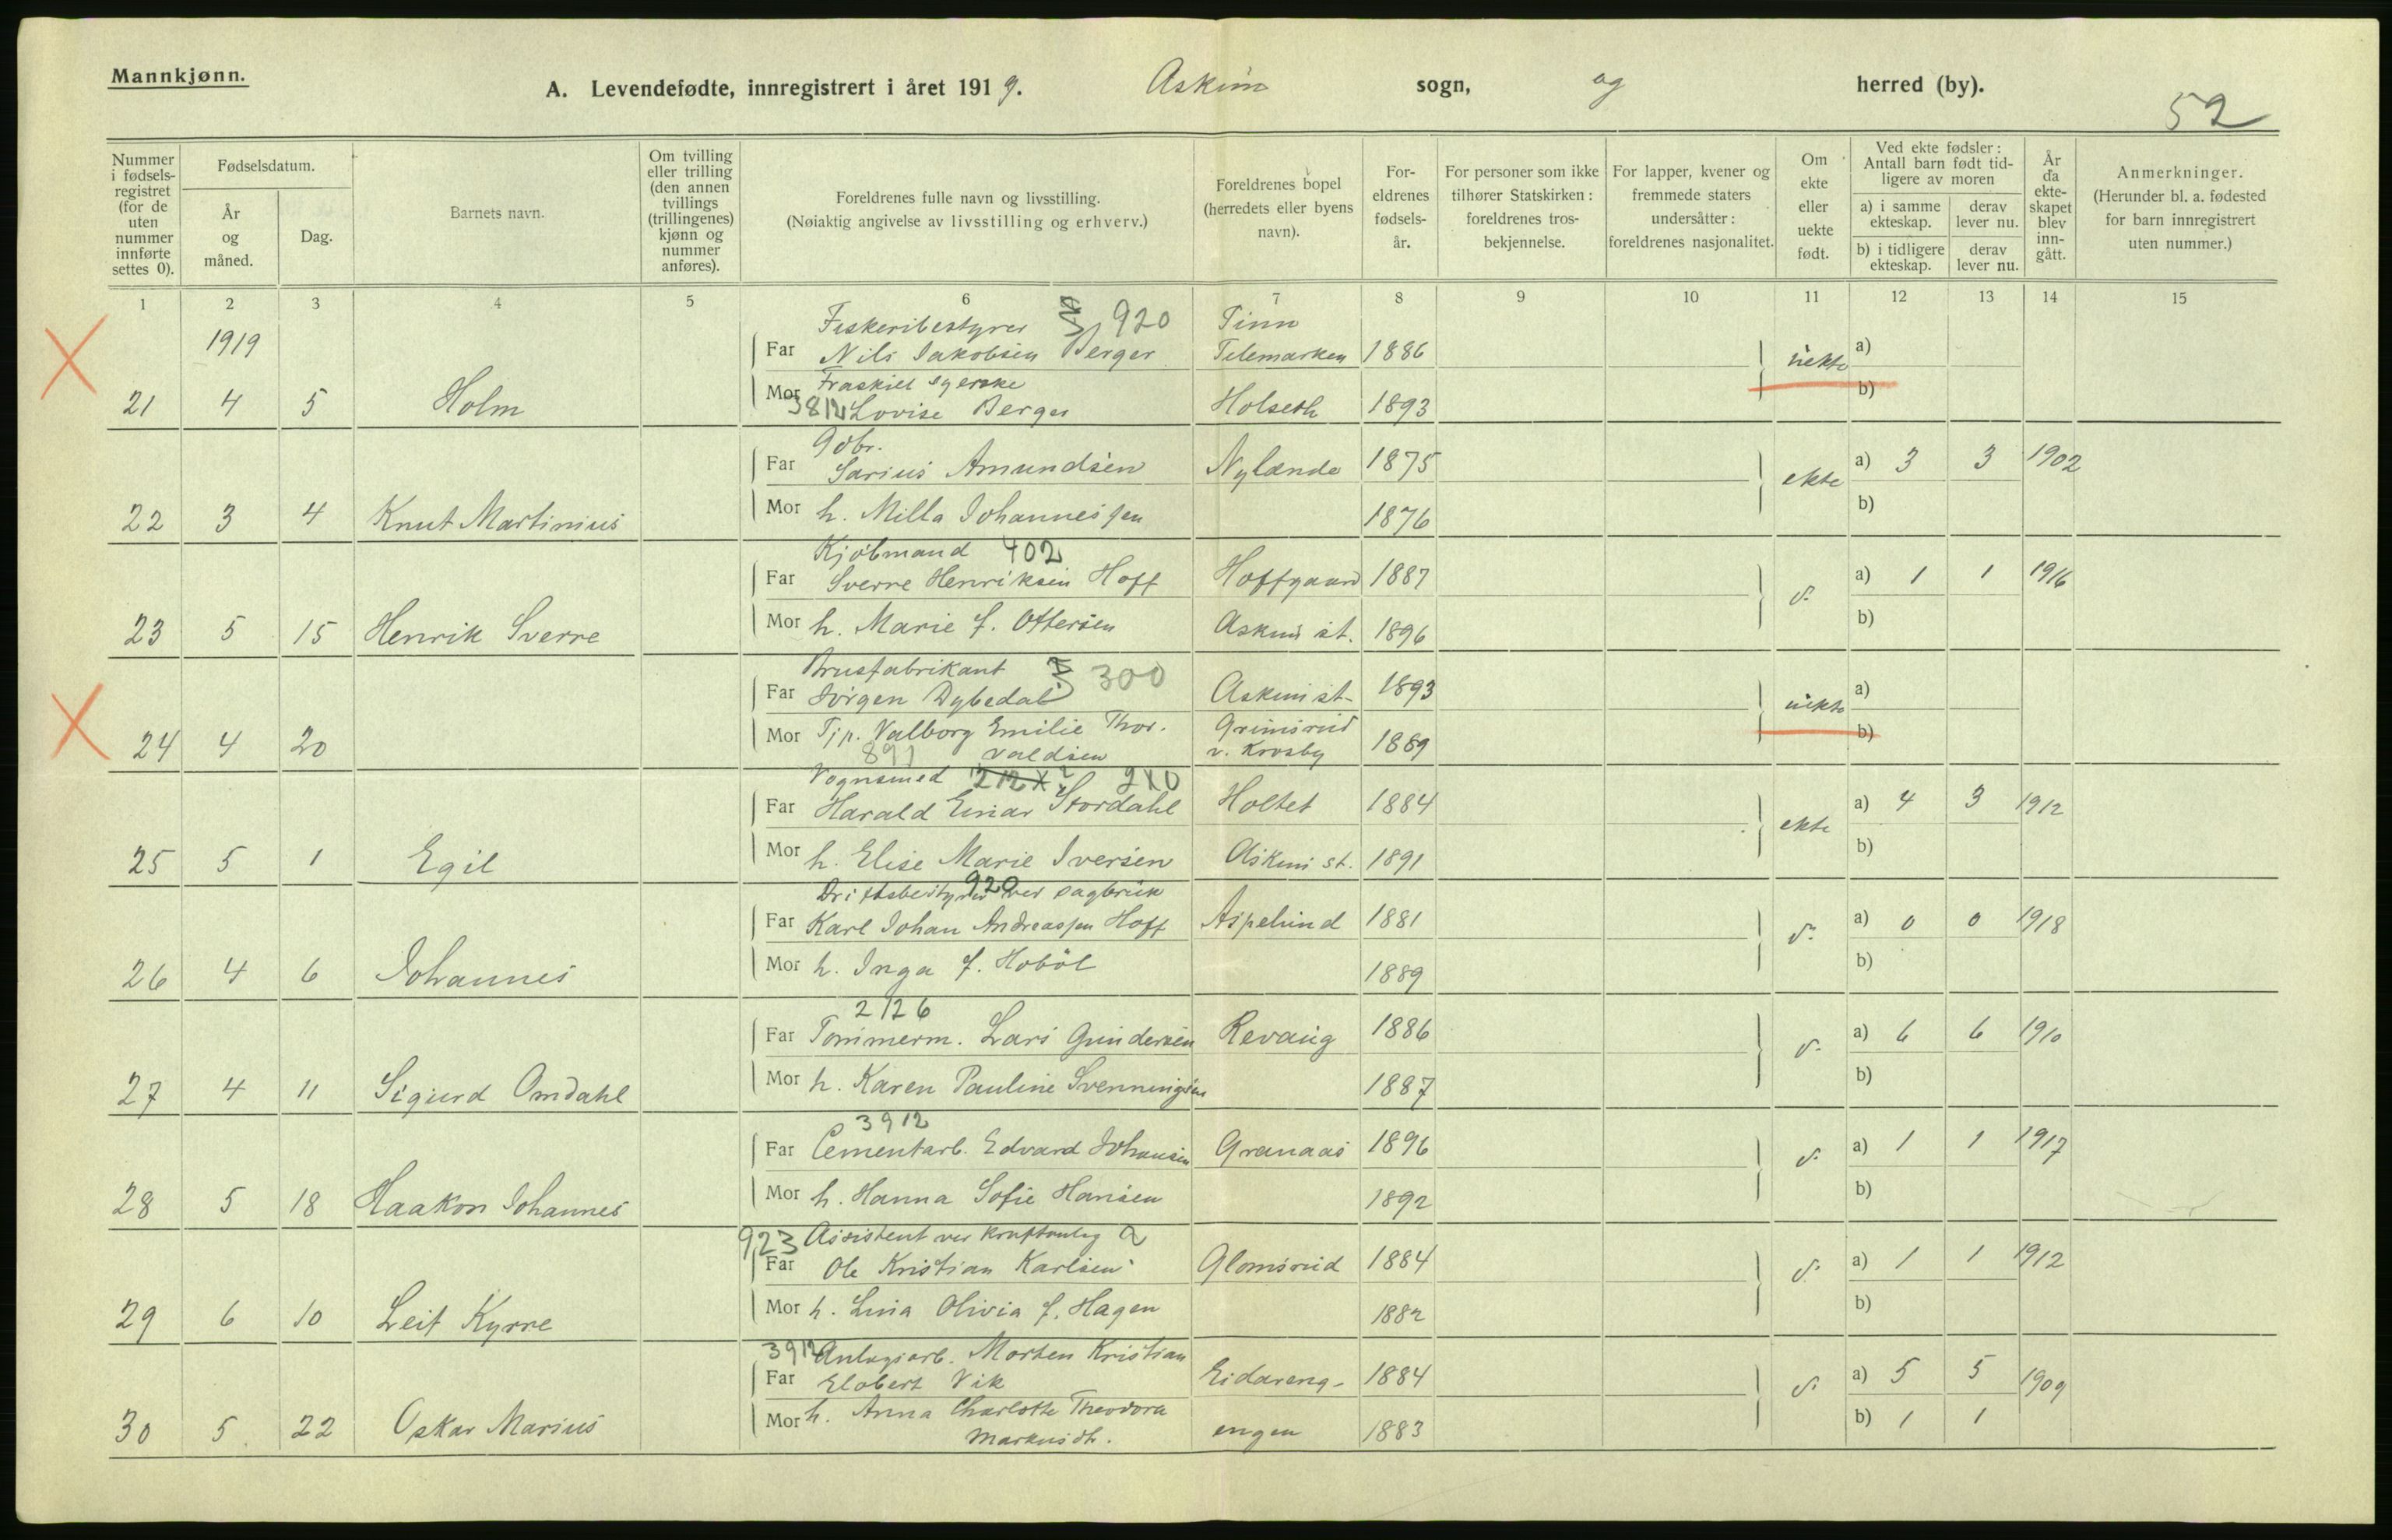 Mannkjønn.
A. Levendefødte, innregistrert i året 1919. Askim sogn, og herred (by).
52
Nummer i fødsels-registret (for de uten nummer innførte settes 0).
Fødselsdatum.
År og måned.
Dag.
Barnets navn.
Om tvilling eller trilling (den annen tvillings (trillingenes) kjønn og nummer anføres).
Foreldrenes fulle navn og livsstilling.
(Nøiaktig angivelse av livsstilling og erhverv.)
Foreldrenes bopel (herredets eller byens navn).
For-eldrenes fødsels-år.
For personer som ikke tilhører Statskirken: foreldrenes tros-bekjennelse.
For lapper, kvener og fremmede staters undersåtter: foreldrenes nasjonalitet.
Om ekte eller uekte født.
Ved ekte fødsler: Antall barn født tid-ligere av moren
a) i samme ekteskap.
derav lever nu.
b) i tidligere ekteskap.
derav lever nu.
År da ekte-skapet blev inn-gått.
Anmerkninger.
(Herunder bl. a. fødested for barn innregistrert uten nummer.)
1 2 3 4 5 6 7 8 9 10 11 12 13 14 15
1919
Fiskeribestyrer 920 Tinn
Far Nils Jakobsen Berger Telemarken 1886 uekte a)
Fraskilt syerske
21 4 5 Holm Mor 3812 Lovise Berger Holseth 1893 b)
Gdbr.
Far Sarius Amundsen Nylænde 1875 ekte a) 3 3 1902
22 3 4 Knut Martinius Mor h. Milla Johannessen 1876 b)
Kjøbmand 402
Far Sverre Henriksen Hoff Hoffgaard 1887 d. a) 1 1 1916
23 5 15 Henrik Sverre Mor h. Marie f. Ottersen Askim st. 1896 b)
Brusfabrikant 300
Far Jørgen Dybedal Askim st. 1893 uekte a)
24 4 20 Mor Tjp. Valborg Emilie Thor. Grimsrud 1889 b)
891 valdsen v. Krosby
Vognsmed 212 X 2 2X0
Far Harald Einar Stordahl Holtet 1884 ekte a) 4 3 1912
25 5 1 Egil Mor h. Elise Marie Iversen Askim st. 1891 b)
Driftsbestyrer ved sagbruk 920
Far Karl Johan Andreassen Hoff Aspelund 1881 d. a) 0 0 1918
26 4 6 Johannes Mor h. Inga f. Hobøl 1889 b)
2126
Far Tømmerm. Lars Gundersen Revaug 1886 d. a) 6 6 1910
27 4 11 Sigurd Omdahl Mor h. Karen Pauline Svenningsen 1887 b)
3912
Far Cementarb. Edvard Johansen Granaas 1896 d. a) 1 1 1917
28 5 18 Haakon Johannes Mor h. Hanna Sofie Hansen 1892 b)
923 Assistent ved kraftanleg
Far Ole Kristian Karlsen Glomsrud 1884 d. a) 1 1 1912
29 6 10 Leif Kyrre Mor h. Lina Olivia f. Hagen 1882 b)
3912 Anlegsarb. Morten Kristian
Far Elobert Vik Eidareng- 1884 d. a) 5 5 1909
30 5 22 Oskar Marius Mor h. Anna Charlotte Theodora engen 1883 b) 1 1